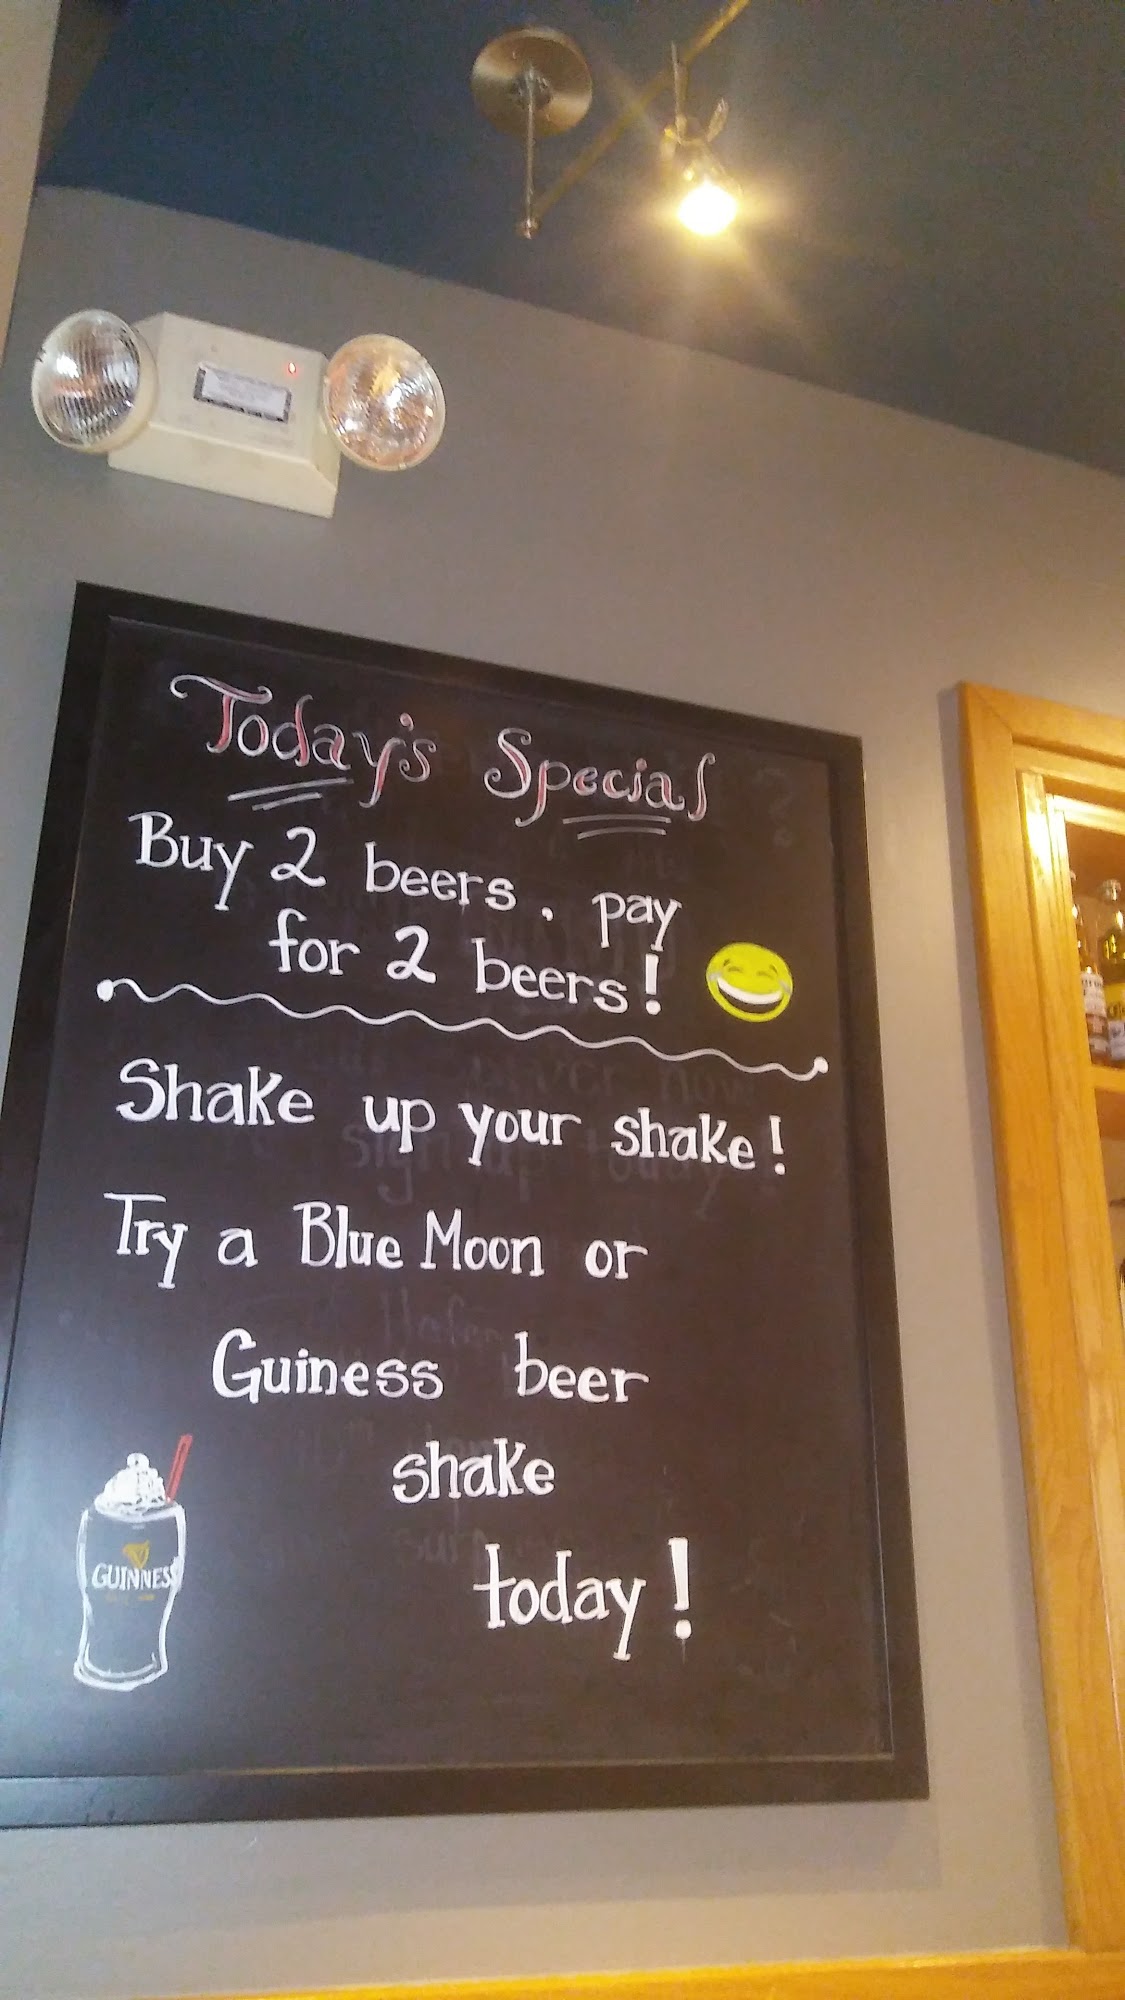 Today's Special
Buy 2 beers, pay
for 2 beers!
Shake up your shake!
Try a Blue Moon or
Guiness beer
shake
today!
GUINNESS